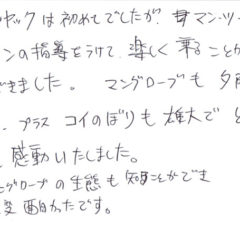 ヤックは初めてでしたが、マン・ツー
ンの指導をうけて、楽しく乗ること
できました。 マングローブも夕
プラス コイのぼりも 雄大で と
感動いたしました。
ングローブの生態も知ることができ
変面白かったです。